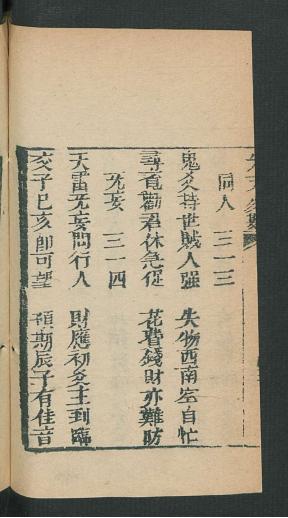 同人　三一三
鬼爻持世賊人強　失物西南空自忙
尋看勸君休急促　花費錢財亦難防
无妄　三一四
天雷无妄問行人　財應初爻主到臨
亥子巳亥即可望　預期辰子有佳音